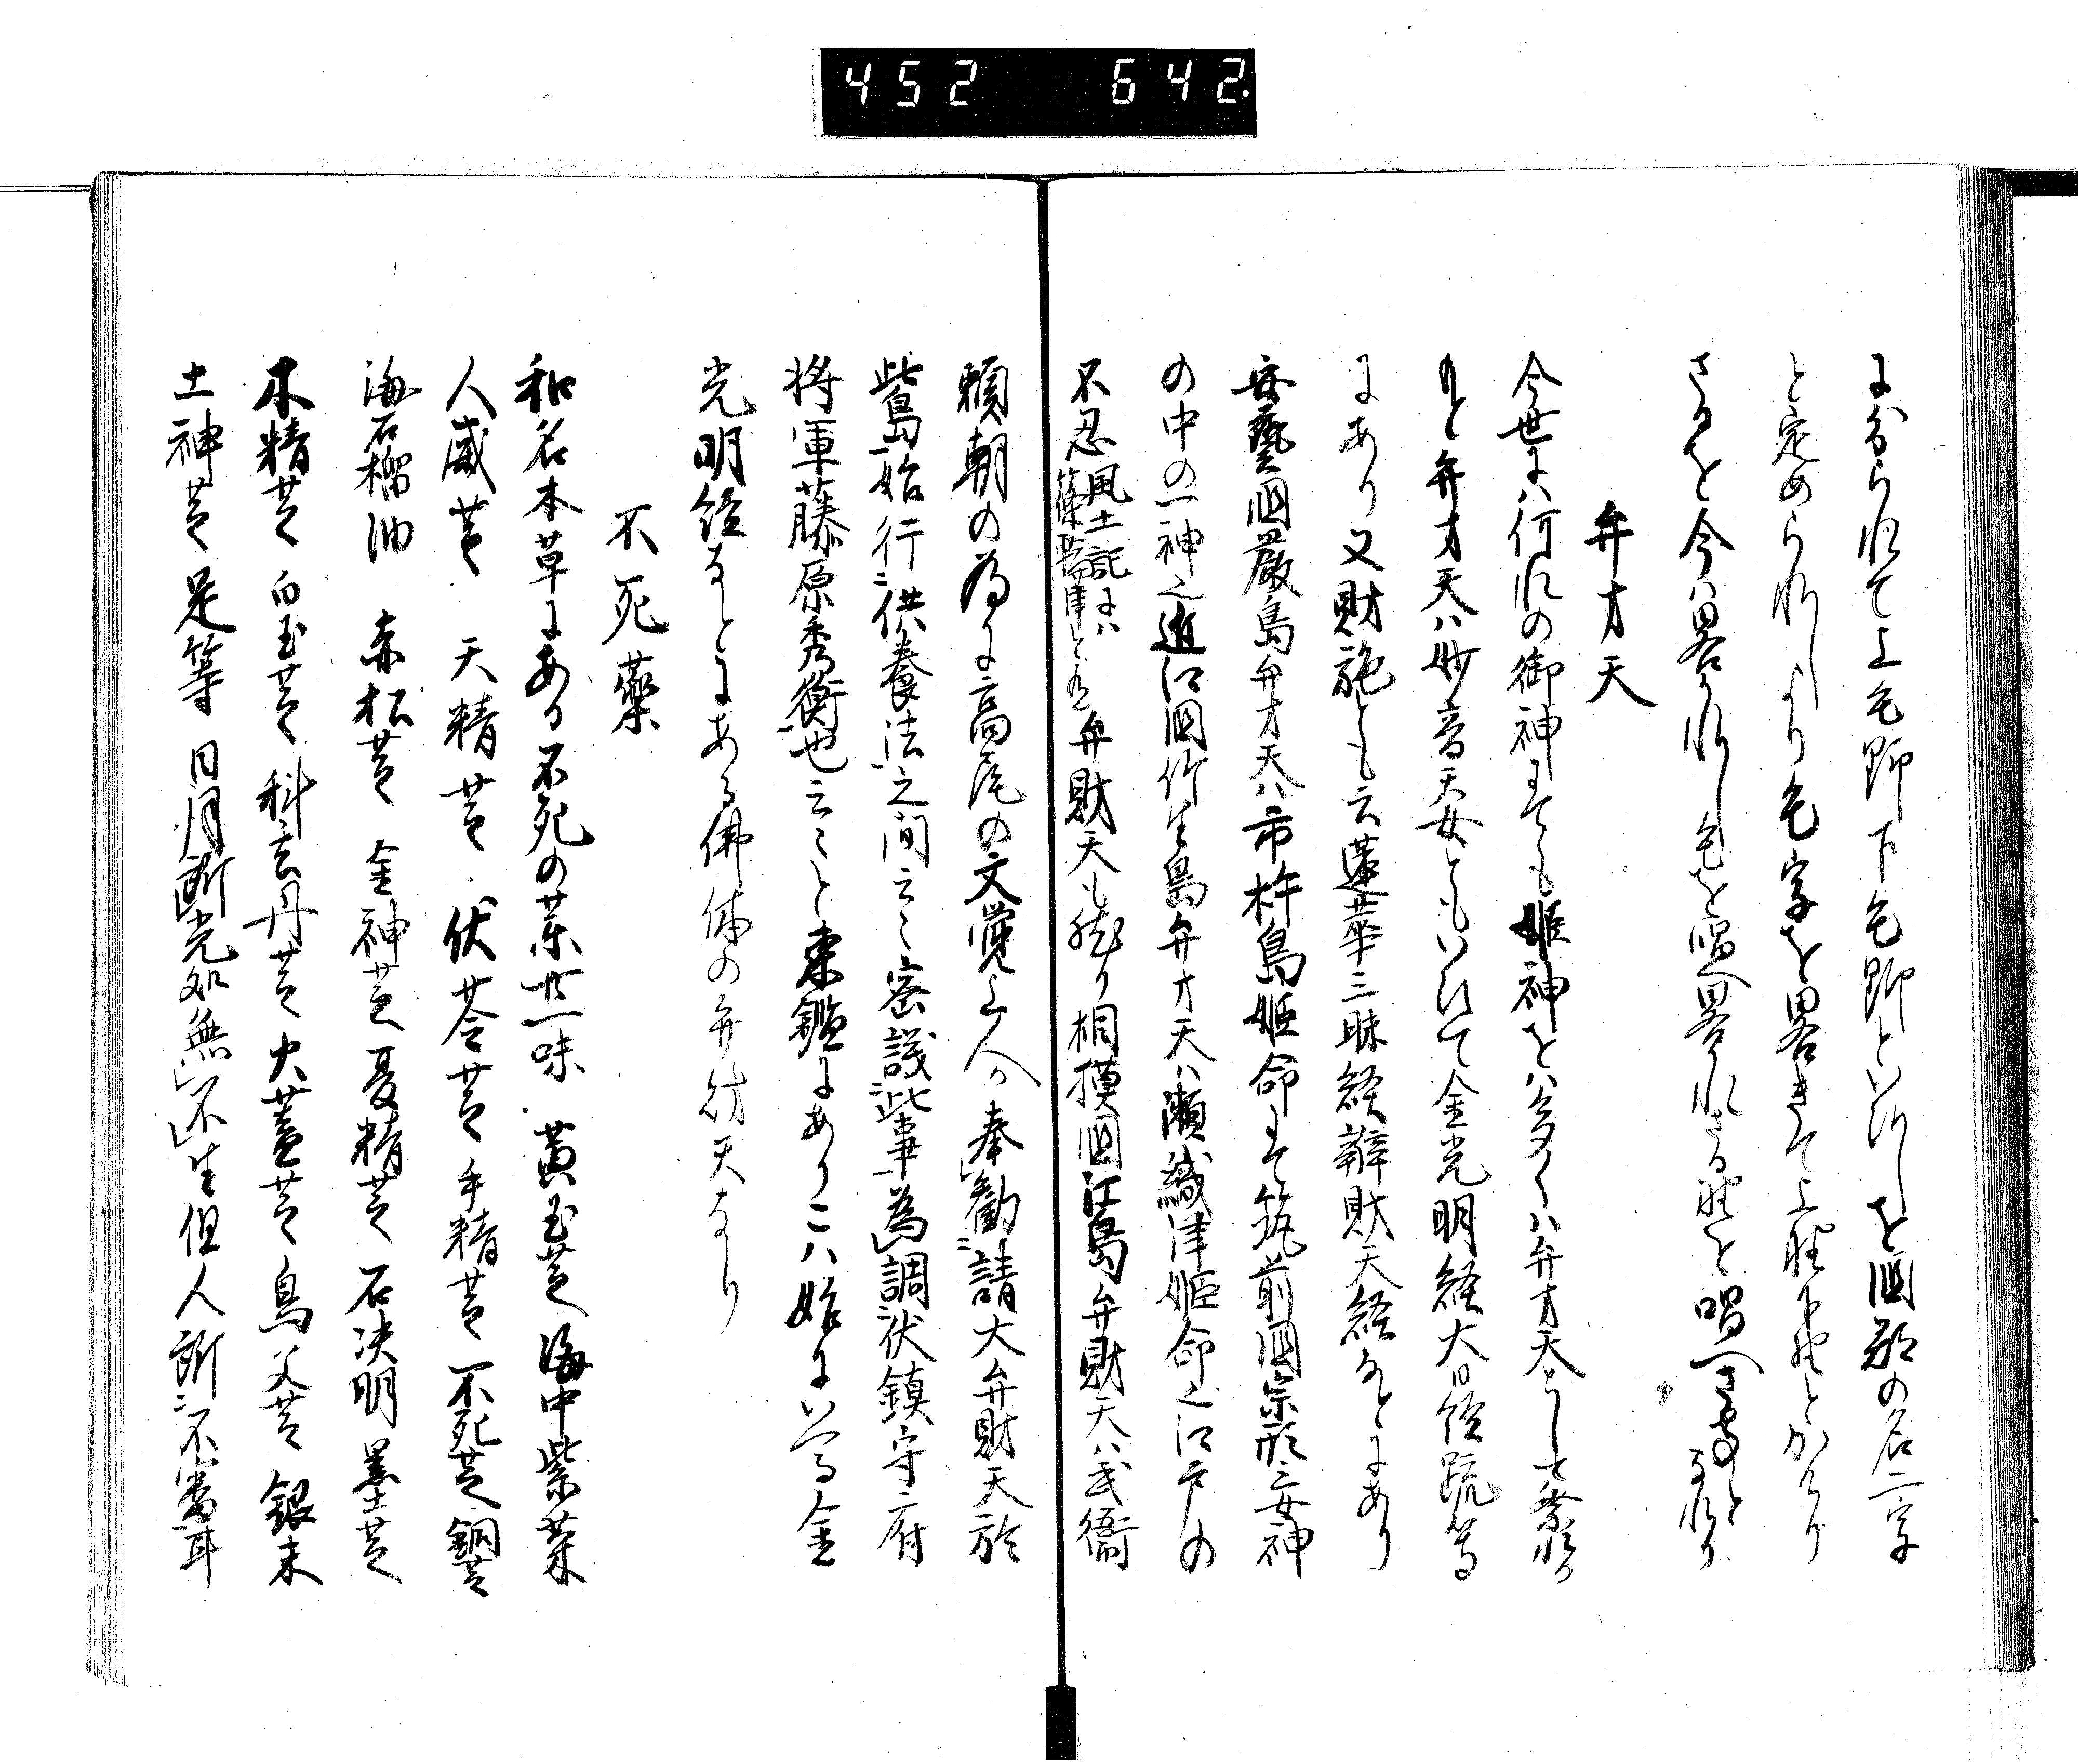 452 642.
に分られて上毛野下毛野といひしを国郡の名二字
と定められしより毛字を畧きて上野下野とかけり
さるを今は畧かれし毛を唱へ畧かれさる野を唱へさる事となれり
弁才天
今世には何れの御神にても姫神をは多くは弁才天として祭れり
もと弁才天は妙音天女ともいひて金光明経大日経疏等
にあり又財施とも云蓮華三昧経辯財天経なとにあり
安藝国厳島弁才天は市杵島姫命にて筑前国宗形三女神
の中の一神也近江国竹生島弁才天は瀬織津姫命也江戸の
不忍風土記には篠輪津と云弁財天も然り相摸国江島弁財天は武衞
頼朝の為に高尾の文覚上人の奉勧請大弁財天於
此島始行供養法之間云々密議此事為調伏鎮守府
将軍藤原秀衡也云々と東鑑にありこは始にいへる金
光明経なとにある佛体の弁財天なり
不死藥
和名本草にある不死の薬廿一味 黄玉芝 海中紫葉
人威芝 天精芝 伏苓芝 手精芝 不死芝 銅芝
海石榴油 赤松芝 金神芝 夏精芝 石决明 墨土芝
木精芝 白玉芝 科玄丹芝 火蓋芝 鳥父芝 銀末
土神芝 是等 日月所光処無不生但人所不當耳